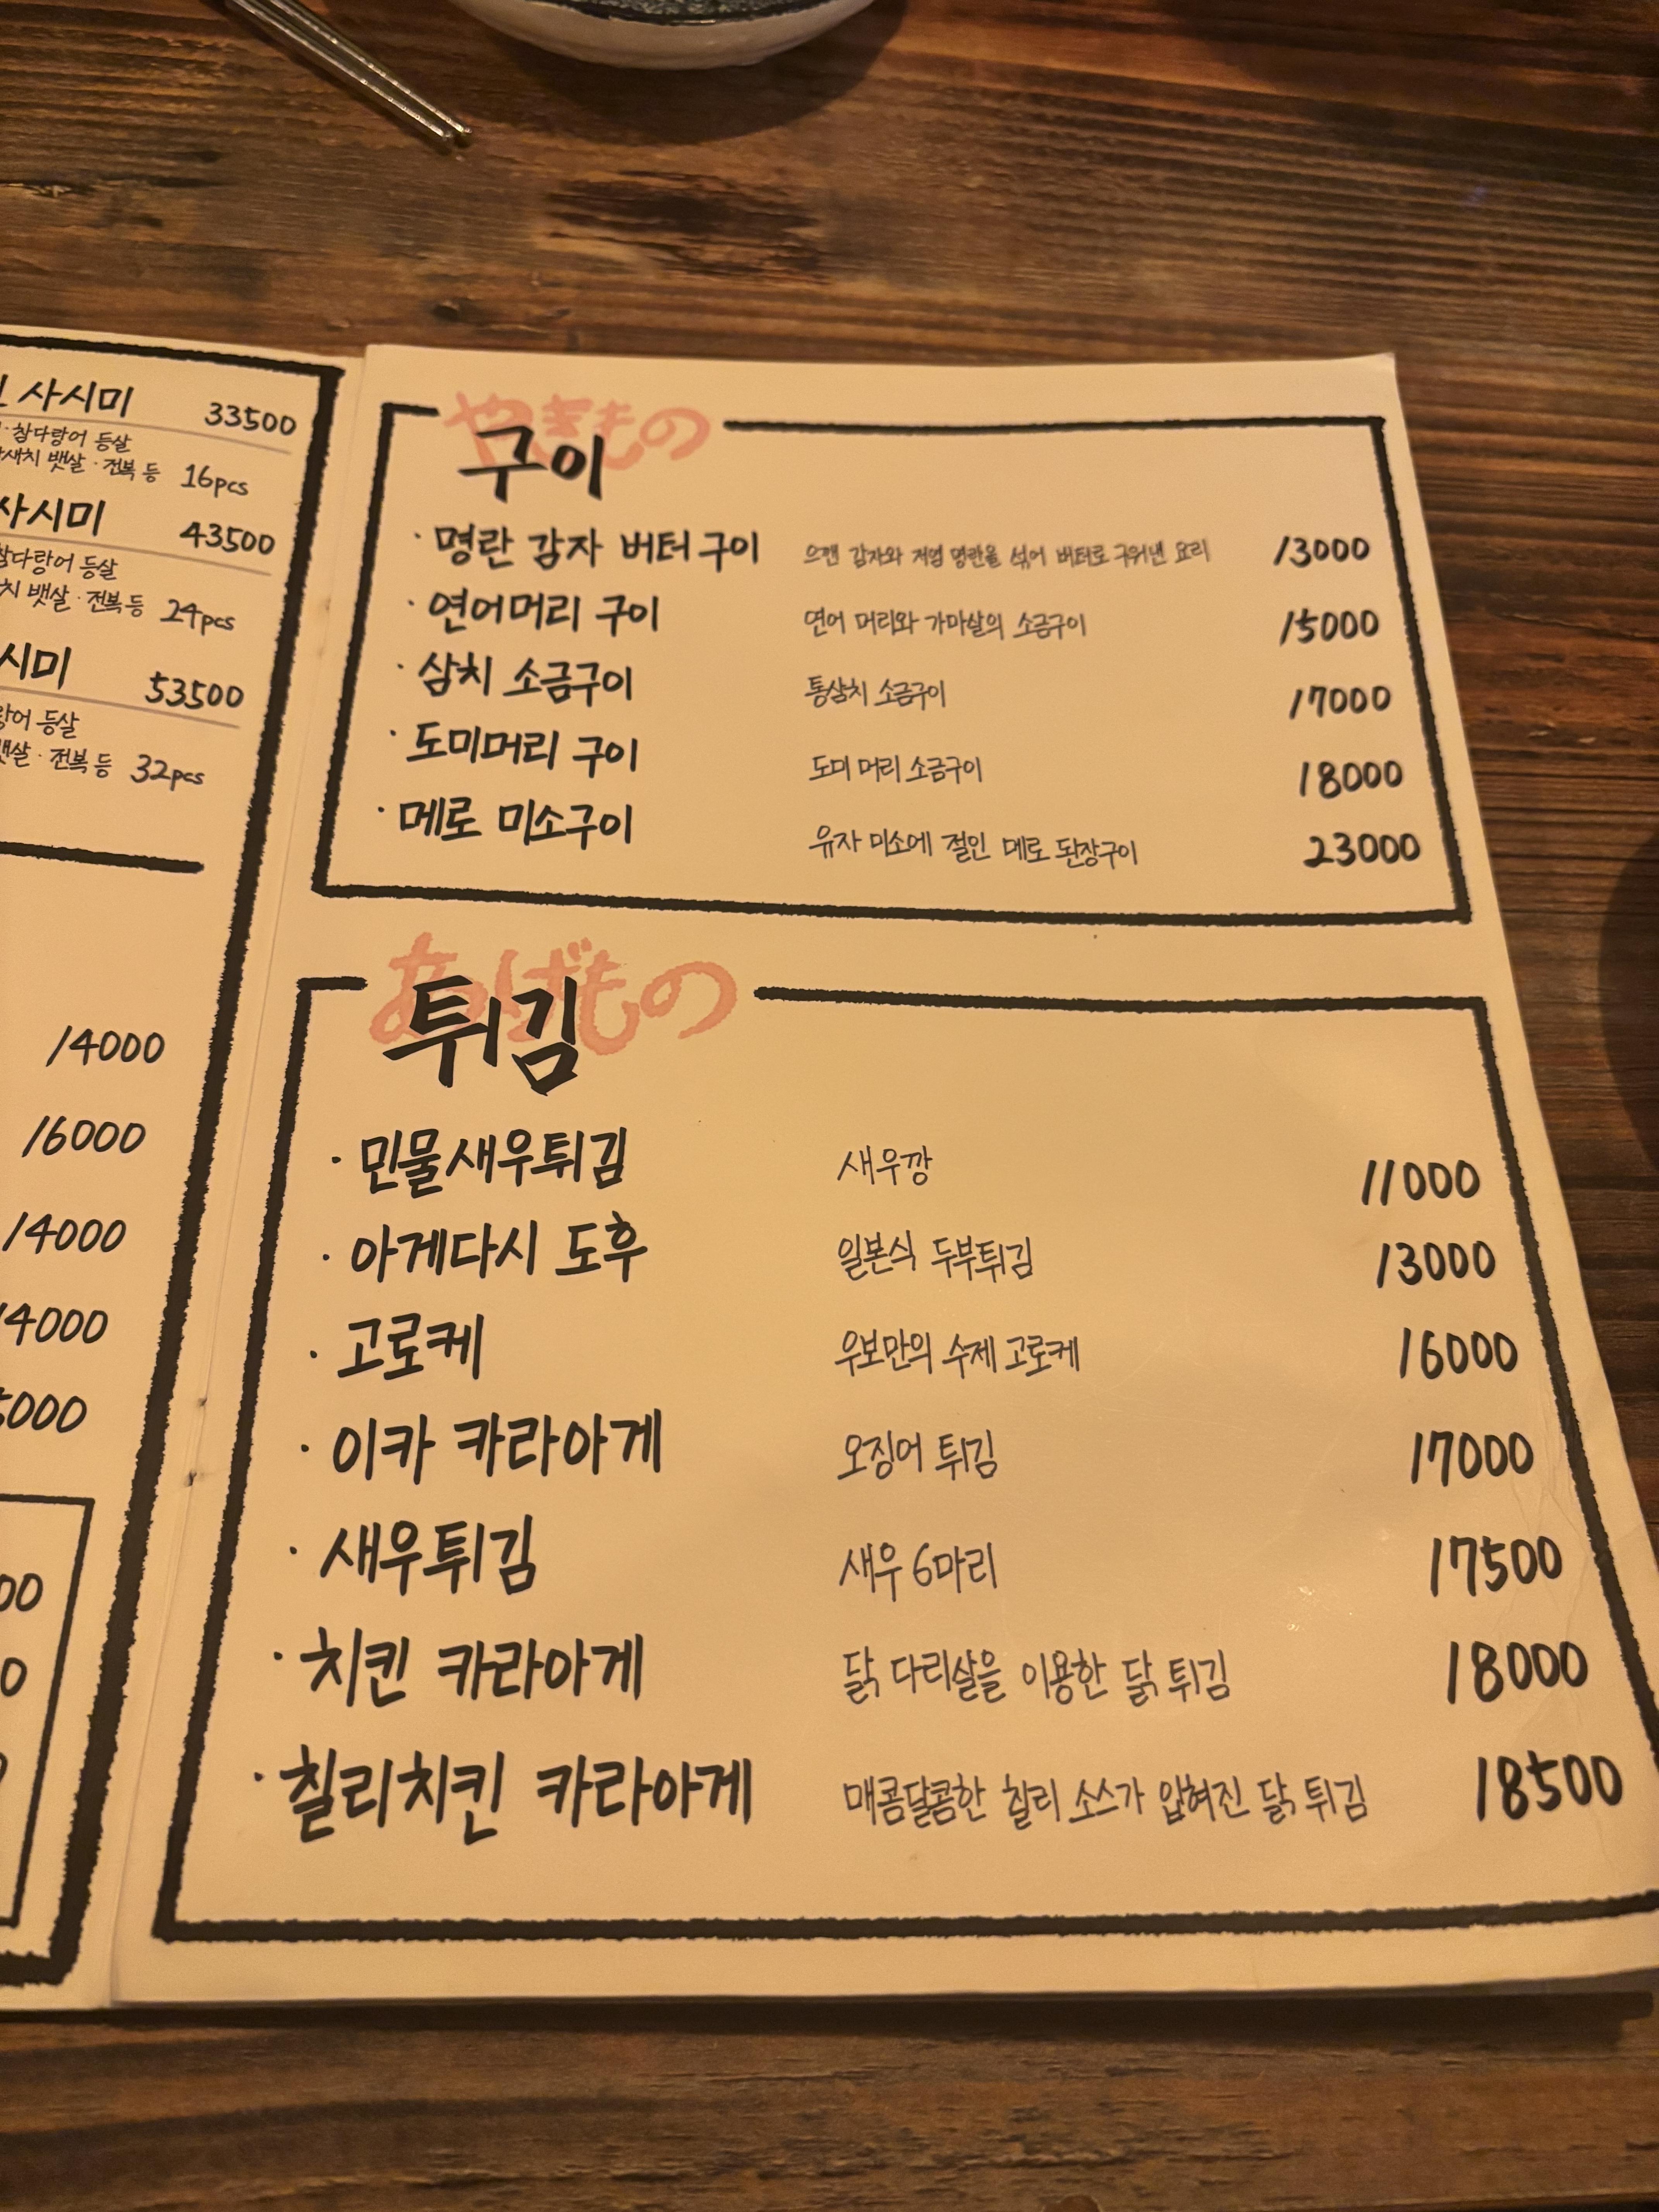 사시미 33500
참다랑어 등살
새치 뱃살 · 전복 등 16pcs
사시미 43500
참다랑어 등살
치 뱃살 · 전복 등 24pcs
시미 53500
랑어 등살
뱃살 · 전복 등 32pcs
14000
16000
14000
4000
5000
やきもの
구이
· 명란 감자 버터구이 으깬 감자와 저염 명란을 섞어 버터로 구워낸 요리 13000
· 연어머리 구이 연어 머리와 가마살의 소금구이 15000
· 삼치 소금구이 통삼치 소금구이 17000
· 도미머리 구이 도미 머리 소금구이 18000
· 메로 미소구이 유자 미소에 절인 메로 된장구이 23000
あげもの
튀김
· 민물새우튀김 새우깡 11000
· 아게다시 도후 일본식 두부튀김 13000
· 고로케 우보만의 수제 고로케 16000
· 이카 카라아게 오징어 튀김 17000
· 새우튀김 새우 6마리 17500
· 치킨 카라아게 닭 다리살을 이용한 닭 튀김 18000
· 칠리치킨 카라아게 매콤달콤한 칠리 소스가 입혀진 닭 튀김 18500